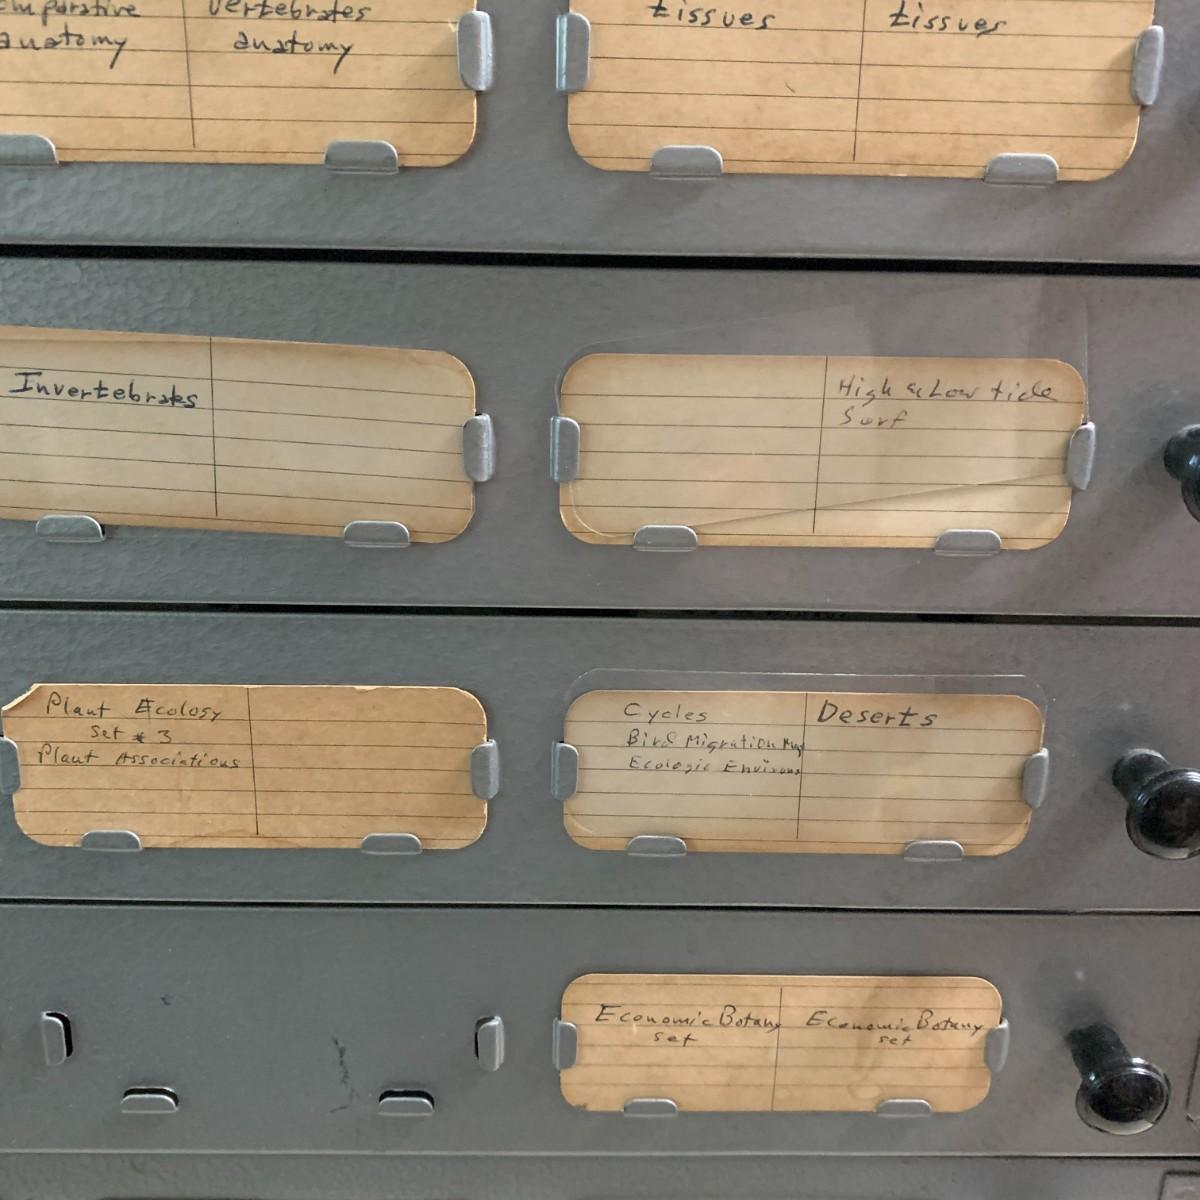 vertebrates
anatomy
anatomy
tissues
tissues
Invertebrates
High & Low tide
Surf
Plant Ecology
Set # 3
Plant Associations
Cycles
Bird Migration
Ecologic
Deserts
Economic Botany
set
Economic Botany
set